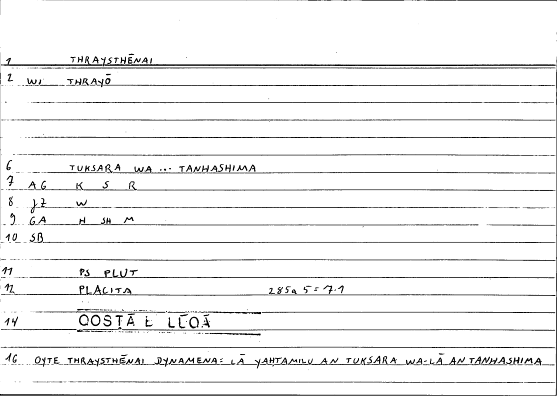 1 THRAYSTHĒNAI
2 WI THRAYŌ
6 TUKSARA WA ... TANHASHIMA
7 AG K S R
8 JZ W
9 GA H SH M
10 SB
11 PS PLUT
12 PLACITA 285a 5 = 7.1
14
16 OYTE THRAYSTHĒNAI DYNAMENA: LĀ YAHTAMILU AN TUKSARA WA-LĀ AN TANHASHIMA